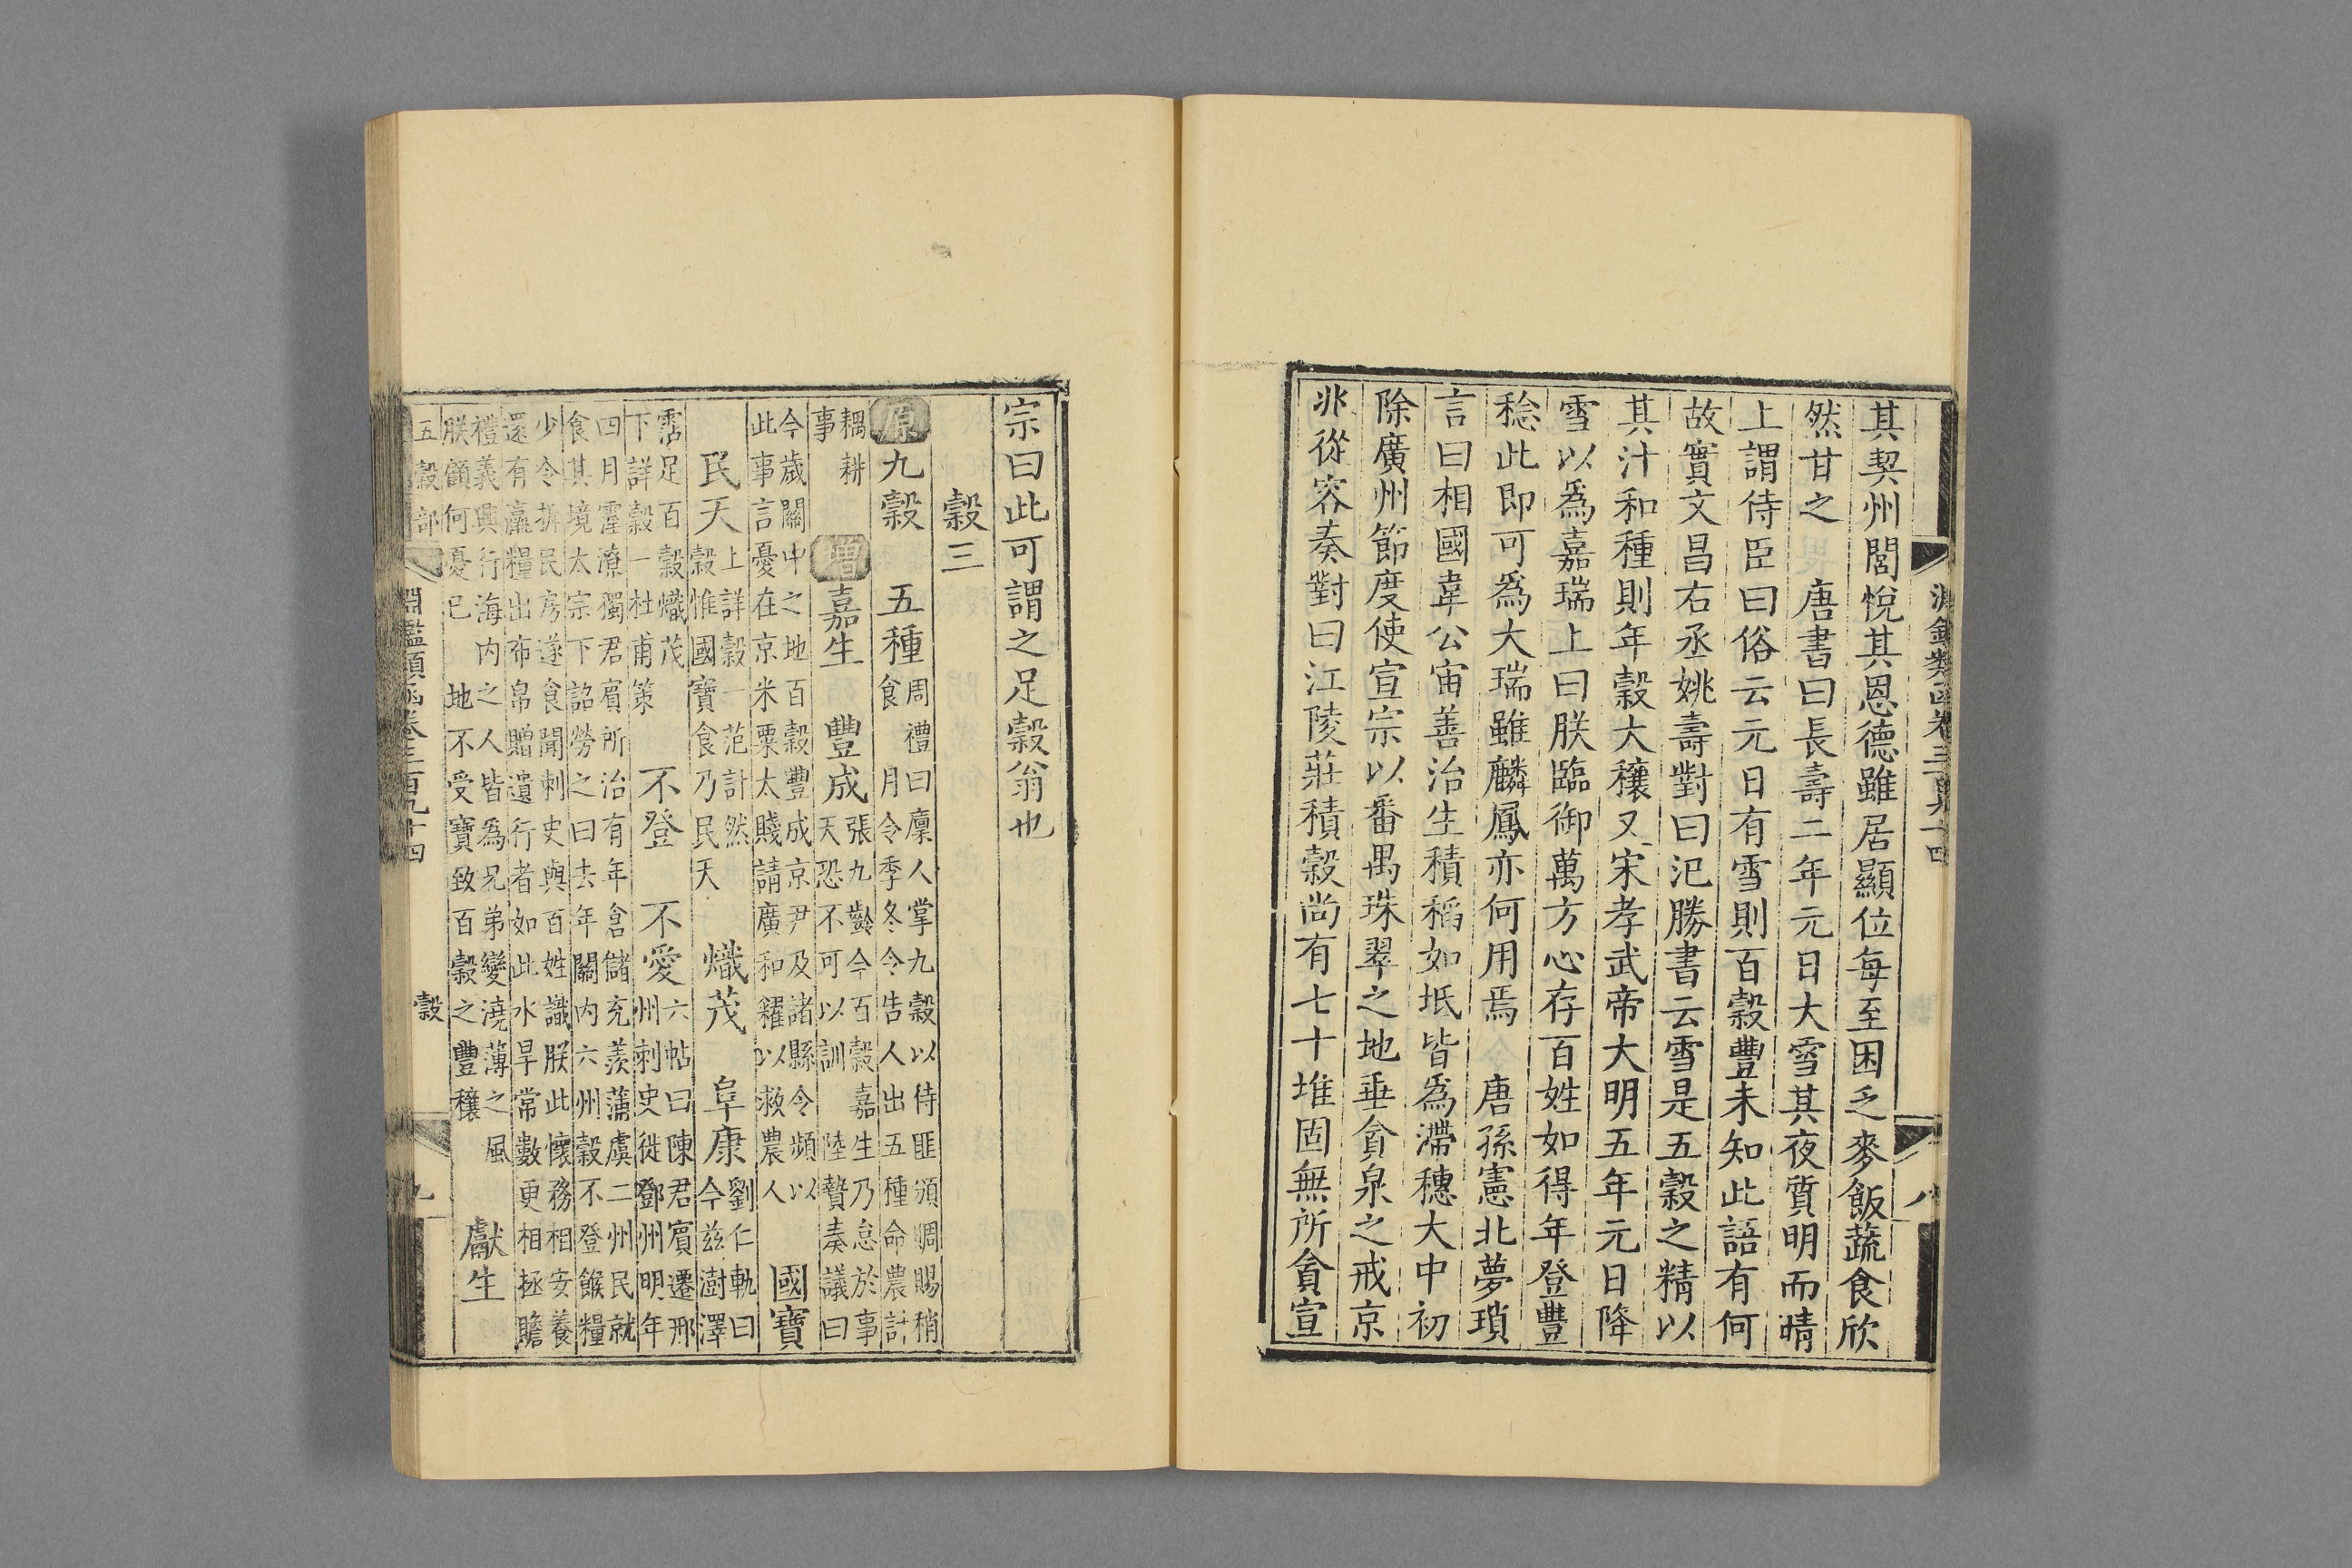 淵鑑類函卷三百九十四 八
其契州閭悅其恩德雖居顯位每至困乏麥飯蔬食欣
然甘之 唐書曰長壽二年元日大雪其夜質明而晴
上謂侍臣曰俗云元日有雪則百穀豐未知此語有何
故實文昌右丞姚壽對曰氾勝書云雪是五穀之精以
其汁和種則年穀大穰又宋孝武帝大明五年元日降
雪以爲嘉瑞上曰朕臨御萬方心存百姓如得年登豐
稔此即可爲大瑞雖麟鳳亦何用焉 唐孫憲北夢瑣
言曰相國韋公宙善治生積稻如坻皆爲滯穗大中初
除廣州節度使宣宗以番禺珠翠之地垂貪泉之戒京
兆從容奏對曰江陵莊積穀尚有七十堆固無所貪宣
宗曰此可謂之足穀翁也
穀三
原 九穀 五種 周禮曰廩人掌九穀以待匪頒賙賜稍
食 月令季冬令告人出五種命農計
耦耕
事 增 嘉生 豐成 張九齡今百穀嘉生乃怠於事
天恐不可以訓 陸贄奏議曰
今歲關中之地百穀豐成京尹及諸縣令頻以
此事言憂在京米粟太賤請廣和糴以救農人 國寶
民天 上詳穀一范計然
穀惟國寶食乃民天 熾茂 阜康 劉仁軌曰
今兹澍澤
霑足百穀熾茂
下詳穀一杜甫策 不登 不愛 六帖曰陳君賓遷邢
州刺史徙鄧州明年
四月霪潦獨君賓所治有年倉儲充羨蒲虞二州民就
食其境太宗下詔勞之曰去年關內六州穀不登餱糧
少令拆民房遂食聞刺史與百姓識朕此懷務相安養
還有羸糧出布帛贈遺行者如此水旱常數更相拯贍
禮義興行海内之人皆爲兄弟變澆薄之風
朕顧何憂已 地不受寶致百穀之豐穰 獻生
五穀部 淵鑑類函卷三百九十四 穀 九